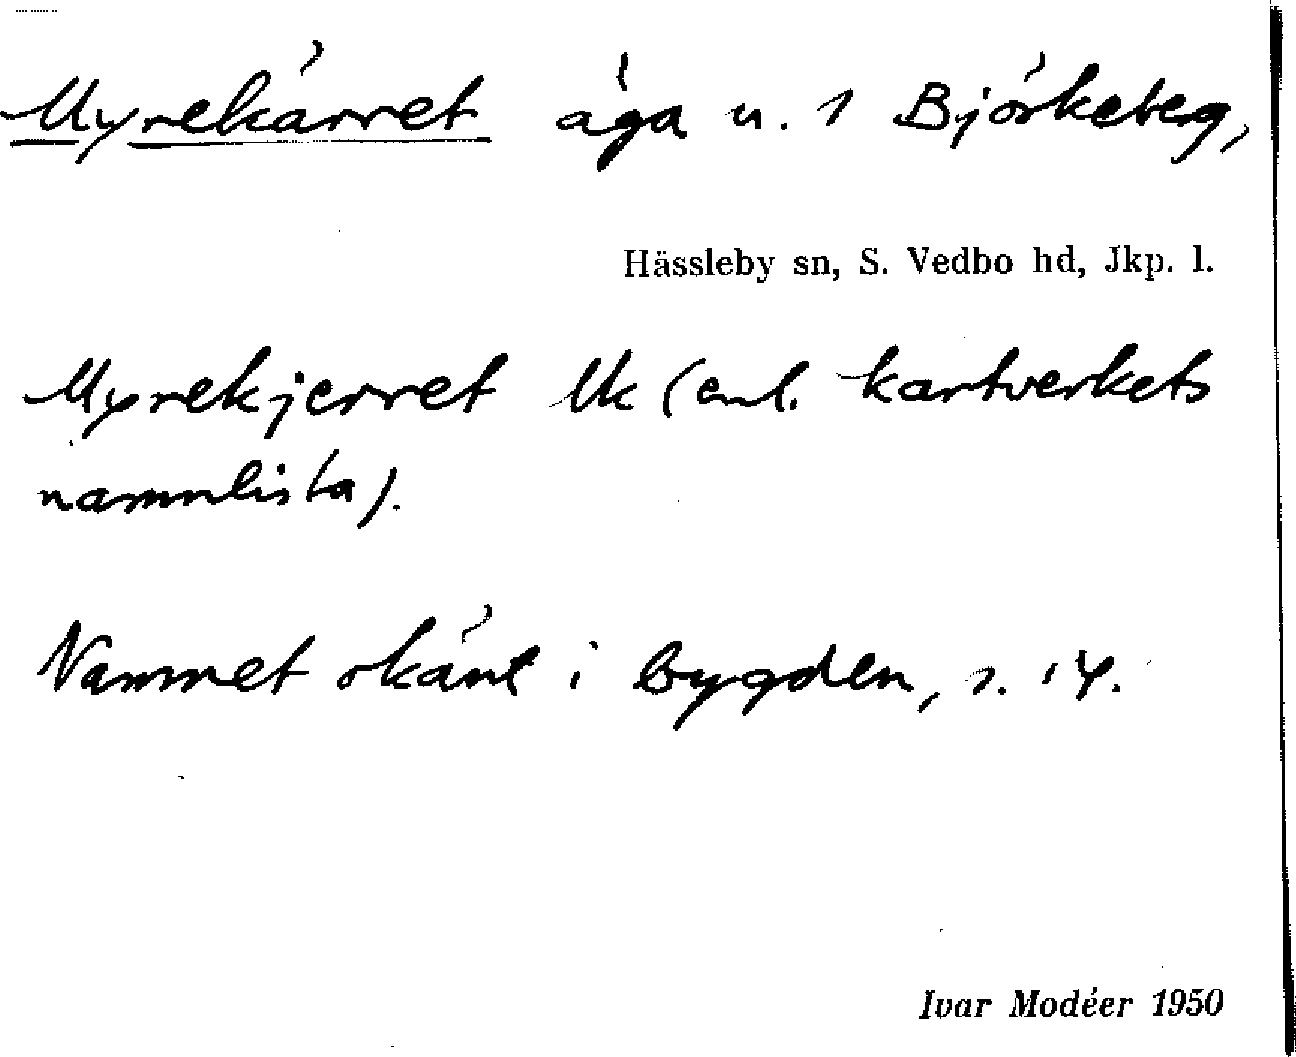 Myrekärret äga u. 1 Björkeberg,
Hässleby sn, S. Vedbo hd, Jkp. l.
Myrekjerret Uk (enl. kartverkets
namnlista).
Namnet okänt i bygden, s. 14.
Ivar Modéer 1950